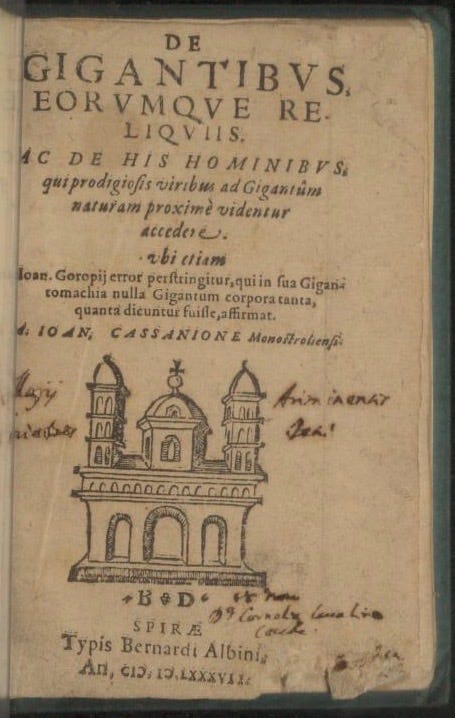 DE
GIGANTIBVS,
EORVMQVE RE-
LIQVIIS.
AC DE HIS HOMINIBVS,
qui prodigiosis viribus ad Gigantûm
naturam proximè videntur
accedere.
vbi etiam
Ioan. Goropij error perstringitur, qui in sua Giganta
tomachia nulla Gigantum corpora tanta,
quanta dicuntur fuisse, affirmat.
A. IOAN. CASSANIONE Monostroliensi.
Ariminensis
B D
SPIRÆ
Typis Bernardi Albini,
An. CIↃ, IↃ.LXXXVII.